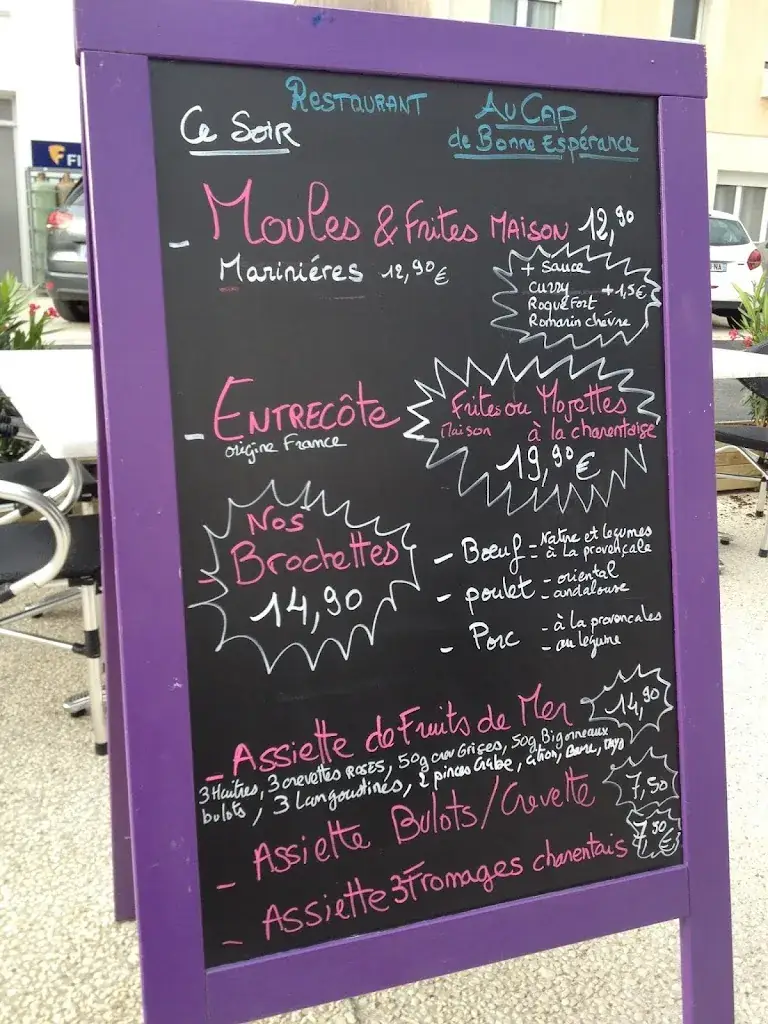 Ce Soir
Restaurant
Au Cap
de Bonne Espérance
- Moules & Frites Maison 12,90
Mariniéres 12,90 €
+ Sauce
curry +1,5€
Roquefort
Romarin chévre
- Entrecôte
origine France
Frites ou Mojettes
Maison à la charentaise
19,90 €
- Nos
Brochettes
14,90
- Boeuf = Nature et legumes
à la provençale
- poulet - oriental
- andalouse
- Porc - à la provencales
- au legume
- Assiette de Fruits de Mer 14,90
3 Huitres, 3 crevettes roses, 50g crev Grises, 50g Bigonneaux
bulots, 3 Langoustines, 2 pinces Crabe, citron,
- Assiette Bulots/Crevette 7,50
- Assiette 3 Fromages charentais 7,50
€
FI